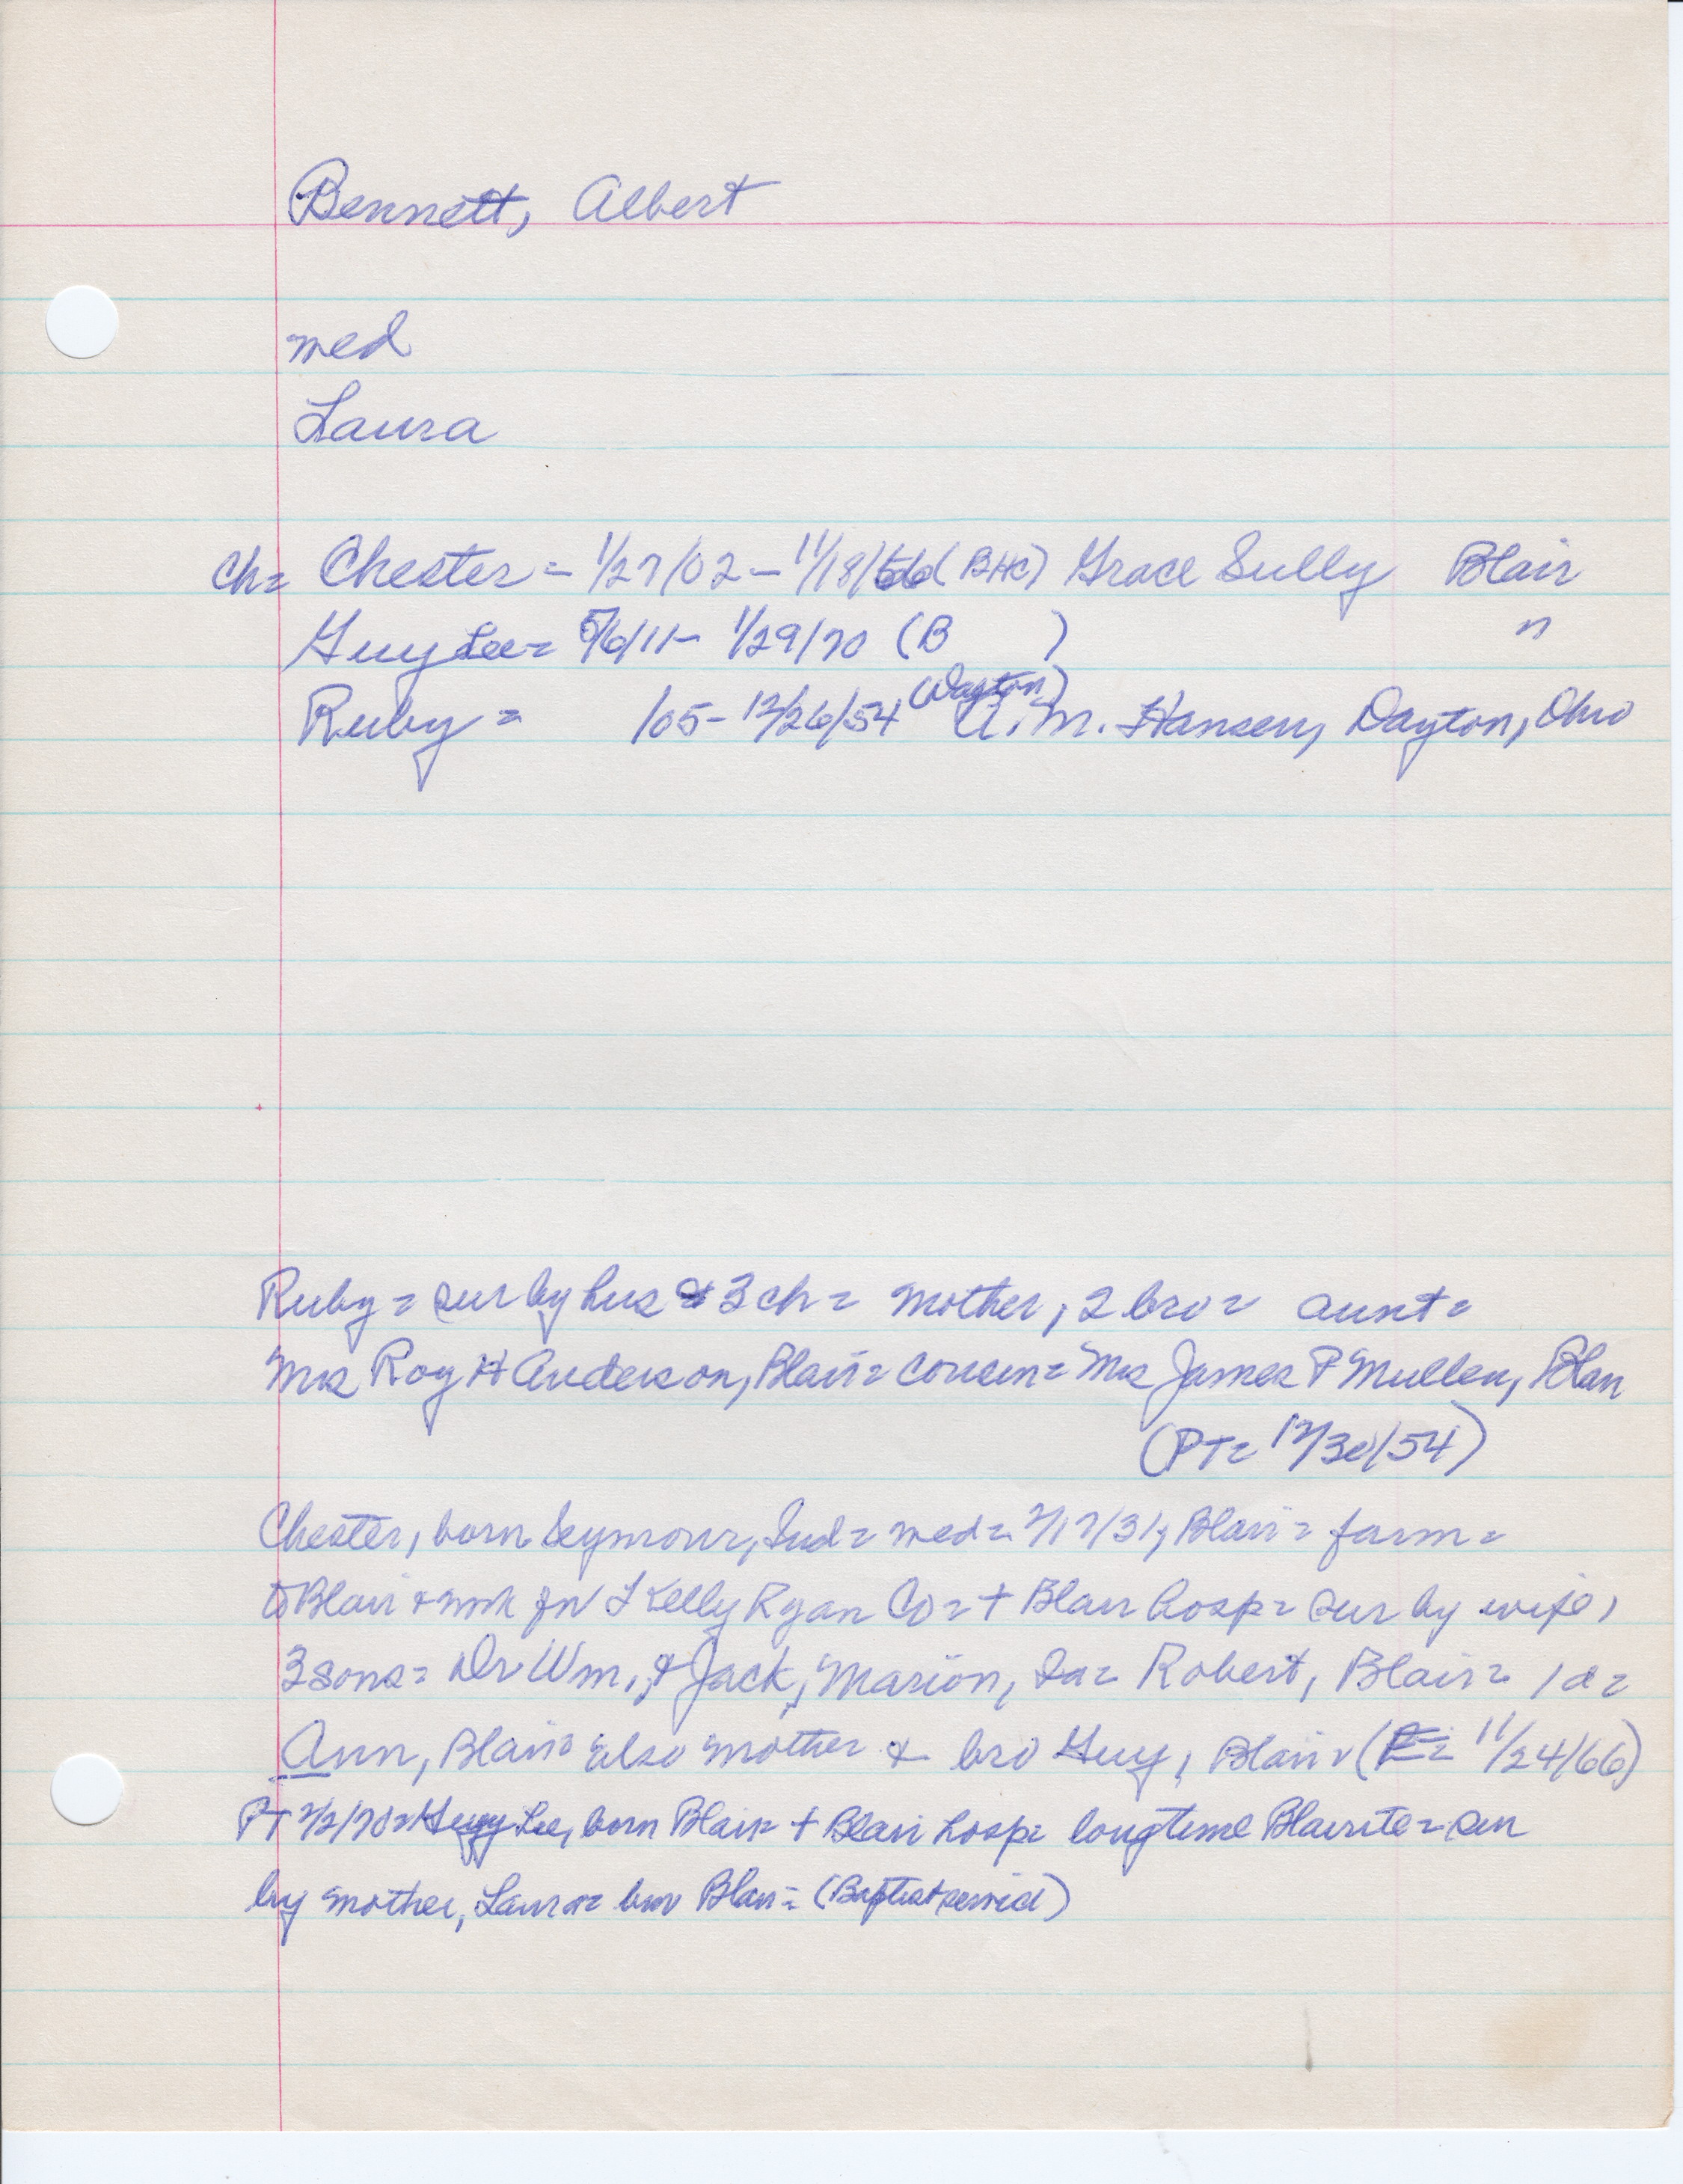 Bennett, Albert
med
Laura
Ch= Chester = 1/27/02 - 11/18/66 (BHC) Grace Sully Blair
Guy Lee = 5/6/11 - 1/29/70 (B ) "
(Dayton)
Ruby = /05 - 12/26/54 A. M. Hansen, Dayton, Ohio
Ruby = sur by hus & 3 ch = mother, 2 bro = aunt =
Mrs Roy H Anderson, Blair = cousin = Mrs James P Mullen, Blair
(PT = 12/30/54)
Chester, born Seymour, Ind = med = 2/17/31, Blair = farm =
to Blair & work for L Kelly Ryan Co = + Blair hosp = sur by wife,
3 sons = Dr Wm, & Jack, Marion, Ia = Robert, Blair = 1 d =
Ann, Blair = also mother & bro Guy, Blair ( = 11/24/66)
PT 2/2/70 = Guy Lee, born Blair = + Blair hosp = longtime Blairite = sur
by mother, Laura = bur Blair = (Baptist)